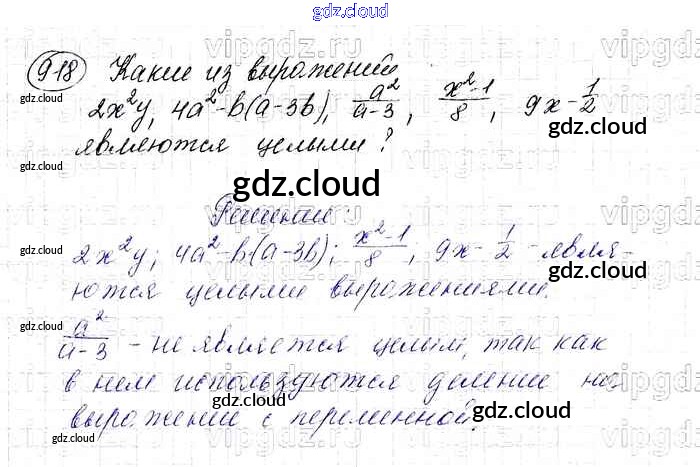 gdz.cloud
918 Какие из выражений
2x²y, 4a²-b(a-3b), a²/a-3, x²-1/8, 9x-1/2
являются целыми?
gdz.cloud
Решение:
2x²y; 4a²-b(a-3b); x²-1/8, 9x-1/2 - явля-
ются целыми выражениями.
a²/a-3 - не является целым, так как
в нем используются деление на
выражение с переменной.
gdz.cloud